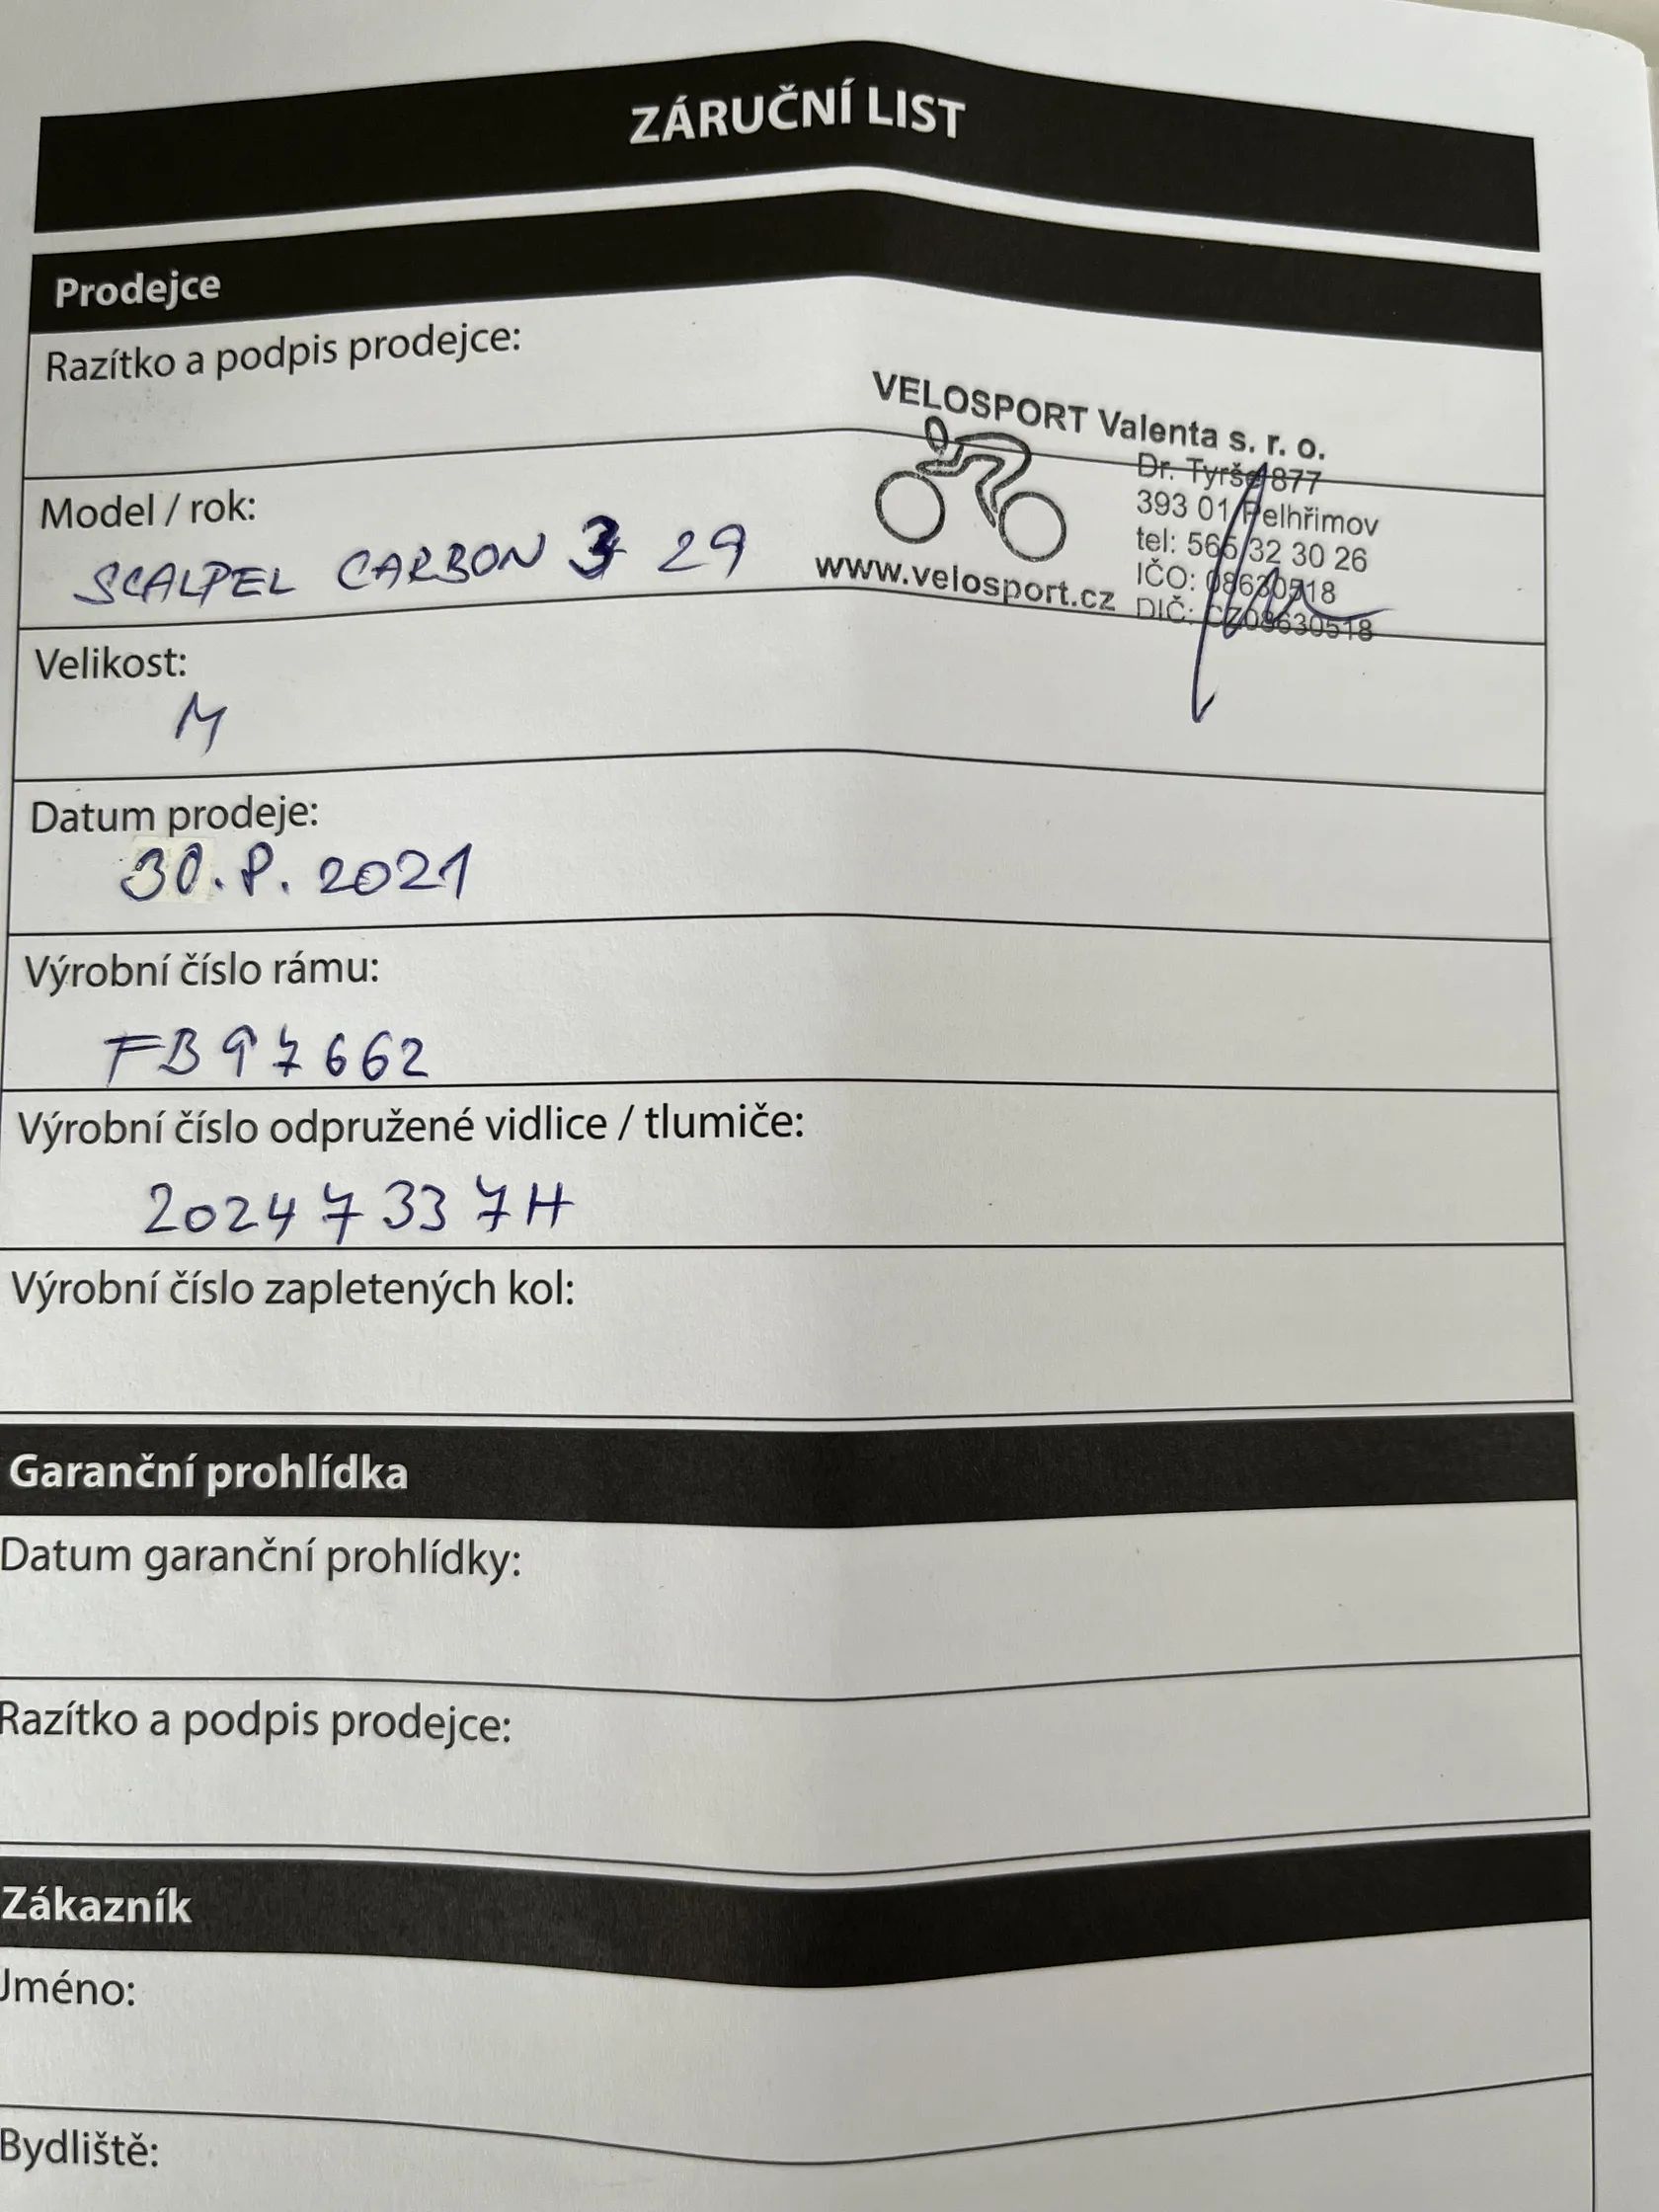 ZÁRUČNÍ LIST
Prodejce
Razítko a podpis prodejce:
VELOSPORT Valenta s. r. o.
Dr. Tyrše 877
393 01 Pelhřimov
tel: 565 32 30 26
IČO: 08630518
DIČ: CZ08630518
www.velosport.cz
Model / rok:
SCALPEL CARBON 3 29
Velikost:
M
Datum prodeje:
30. 8. 2021
Výrobní číslo rámu:
FB97662
Výrobní číslo odpružené vidlice / tlumiče:
20247337H
Výrobní číslo zapletených kol:
Garanční prohlídka
Datum garanční prohlídky:
Razítko a podpis prodejce:
Zákazník
Jméno:
Bydliště: